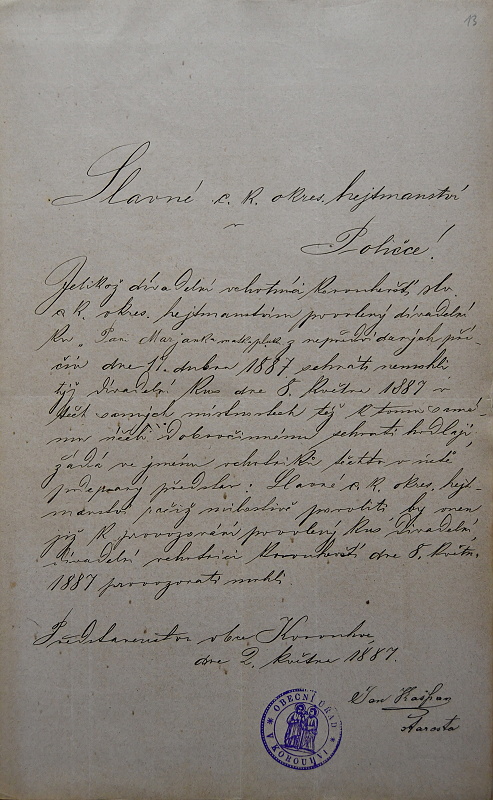 13
Slavné c. k. okres. hejtmanství
v
Poličce!
Jelikož divadelní ochotníci Korouhevští slv.
c k. okres. hejtmanstvím povolený divadelní
kus „Pan Marjanka z nepředvídaných pří-
čin dne 11. dubna 1887 sehráti nemohli
týž divadelní kus dne 8. května 1887 v
těch samých místnostech též k tomu samé-
mu účeli dobročinnému sehráti hodlají,
žádá ve jménu ochotníků těchto v úctě
podepsaný představ: Slavné c. k. okres. hejt-
manství račiž milostivě povoliti by onen
již k provozování povolený kus divadelní
divadelní ochotníci Korouhevští dne 8. květn.
1887 provozovati mohli.
Představenstvo obce Korouhve
dne 2. května 1887.
Jan Kašpar
starosta
OBECNÍ ÚŘAD
V KOROUHVI